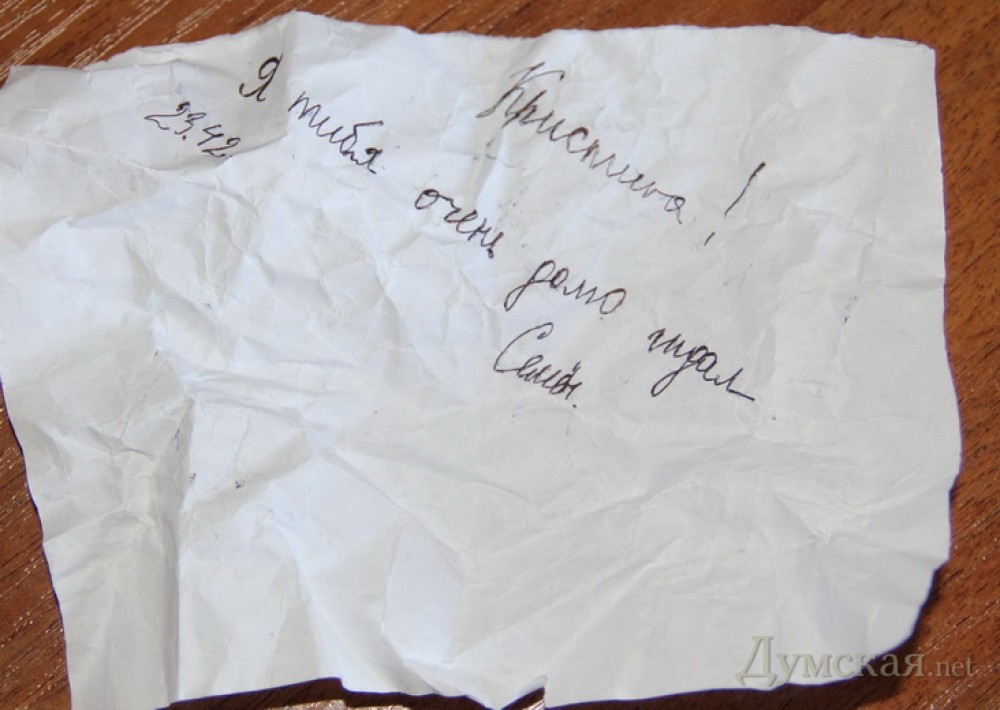 Кристина!
Я тибя очень долго ждал
23.42
Семён.
Думская.net